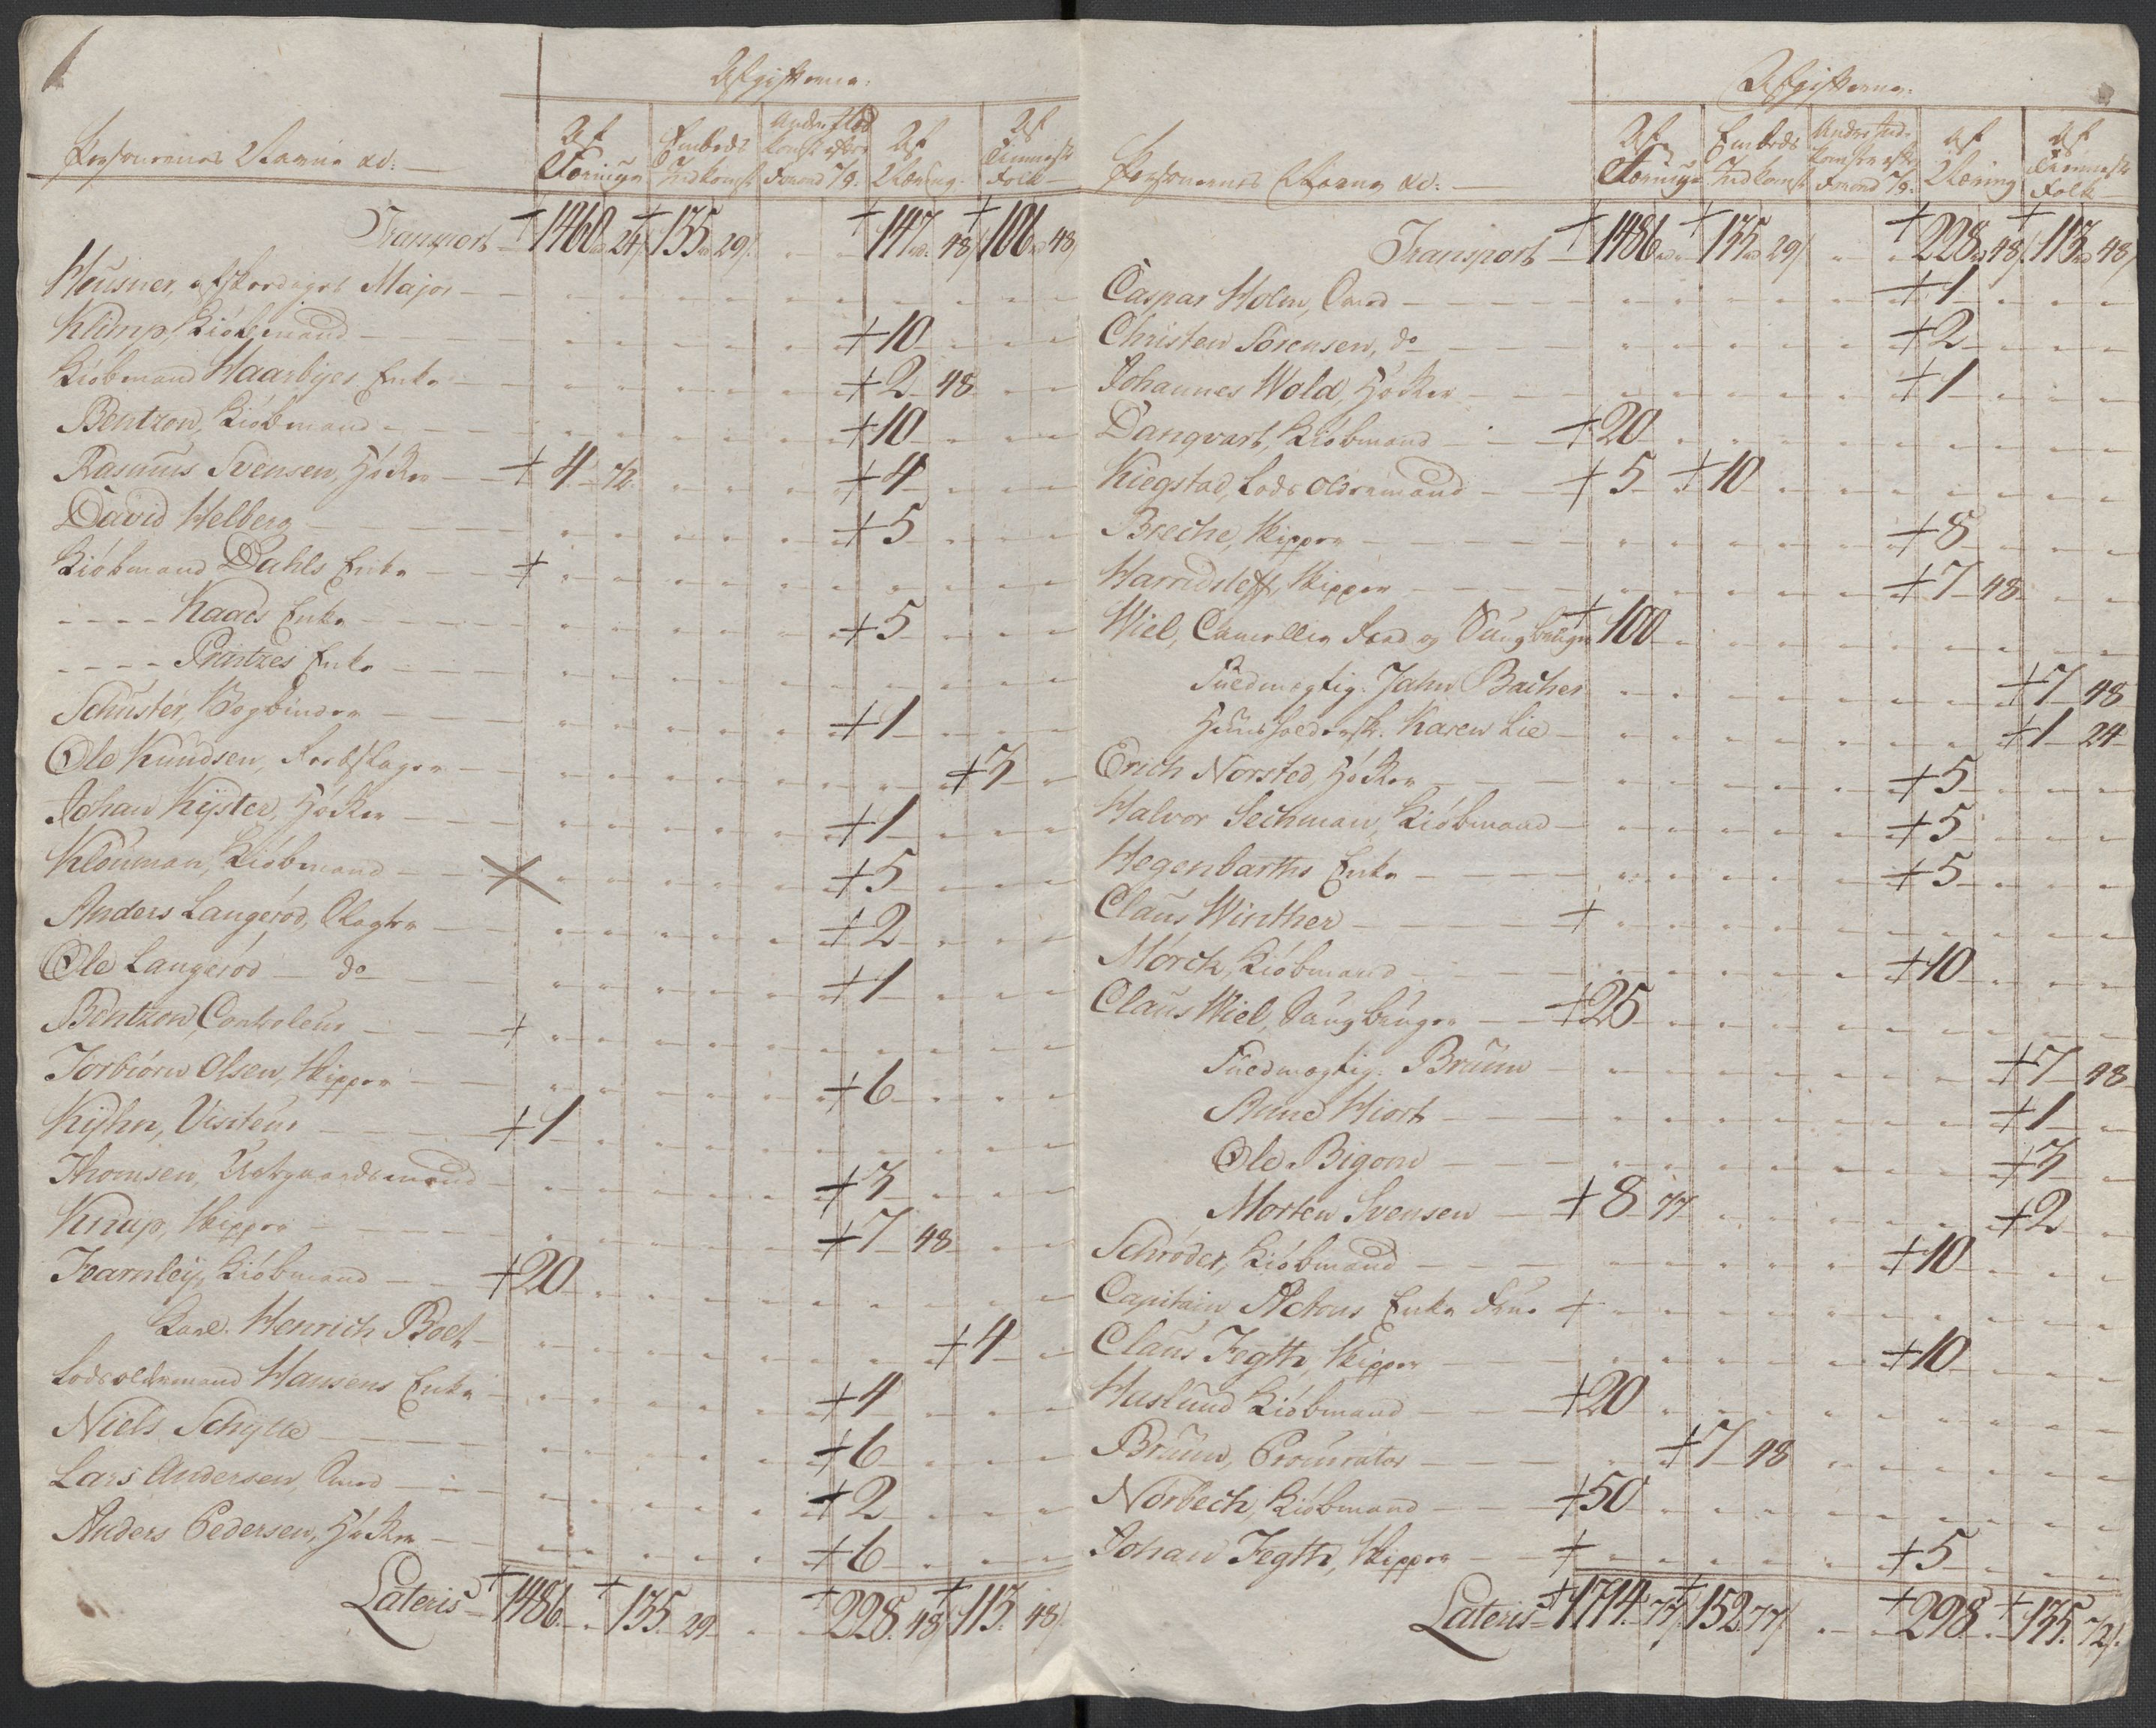 Afgifterne.
Personernes Navne &c: Af Formue Embeds Indkomst Anden Ind komst efter Forord 7/9. Af Næring. Af Tienneste Folk
Transport + 1460 24 + 135 29 - - + 147 48 + 106 48
Heusner, afskediget Major
Klump, Kiøbmand + 10
Kiøbmand Haarbyes Enke + 2 48
Bentzon, Kiøbmand + 10
Rasmus Svensen, Høker + 4 72 + 4
David Helberg + 5
Kiøbmand Dahls Enke +
- - - - Kaads Enke + 5
- - - - Printzes Enke
Schuster, Bogbinder + 1
Ole Knudsen, + 3
Johan Kyster, Høker + 1
Klouman, Kiøbmand + 5
Anders Langerød, Slagter + 2
Ole Langerød do + 1
Bentzon, Controleur +
Torbiørn Olsen, Skipper + 6
Kyhn, Visiteur + 1
Thomsen, + 3
Knup, Skipper + 7 48
Fearnley, Kiøbmand + 20
Karl. Henrich Boet + 4
Lodsoldermand Hansens Enke + 4
Niels Schytte + 6
Lars Andersen, Smed + 2
Anders Pedersen, Høker + 6
Lateris + 1486. - + 135. 29 - - + 228. 48 + 113. 48
Afgifterne.
Personernes Navne &c: Af Formue Embeds Indkomst Anden Ind komst efter Forord 7/9. Af Næring Af Tienneste Folk
Transport + 1486 - + 135 29 - - + 228 48 + 113 48
Caspar Holm, Smed + 1
Christen Sørensen, do + 2
Johannes Wold, Høker + 1
Danqvart, Kiøbmand + 20
Kiegstad, Lods Oldermand + 5 + 10
Breche, Skipper + 8
Harridsleff, Skipper + 7 48
Wiel, Cancellie Raad og Saugbruger + 100
Fuldmægtig. Jahn Bacher + 7 48
Huusholdersk. Karen Lie + 1 24
Erich Norsted, Høker + 5
Halvor Sechman, Kiøbmand + 5
Hegenbarths Enke + 5
Claus Winther +
Mørch, Kiøbmand + 10
Claus Wiel, Saugbruger + 25
Fuldmægtig. Bruun + 7 48
Anne Hiort + 1
Ole Bigorn + 3
Morten Svensen + 8 77 + 2
Schrøder, Kiøbmand + 10
Capitain Actons Enke Frue +
Claus Fegth, Skipper + 10
Huslund Kiøbmand + 20
Bruun, Procurator + 7 48
Nørbech, Kiøbmand + 50
Johan Fegth, Skipper + + 5
Lateris + 1714. 77 + 152 77 - - + 298. - + 135. 72